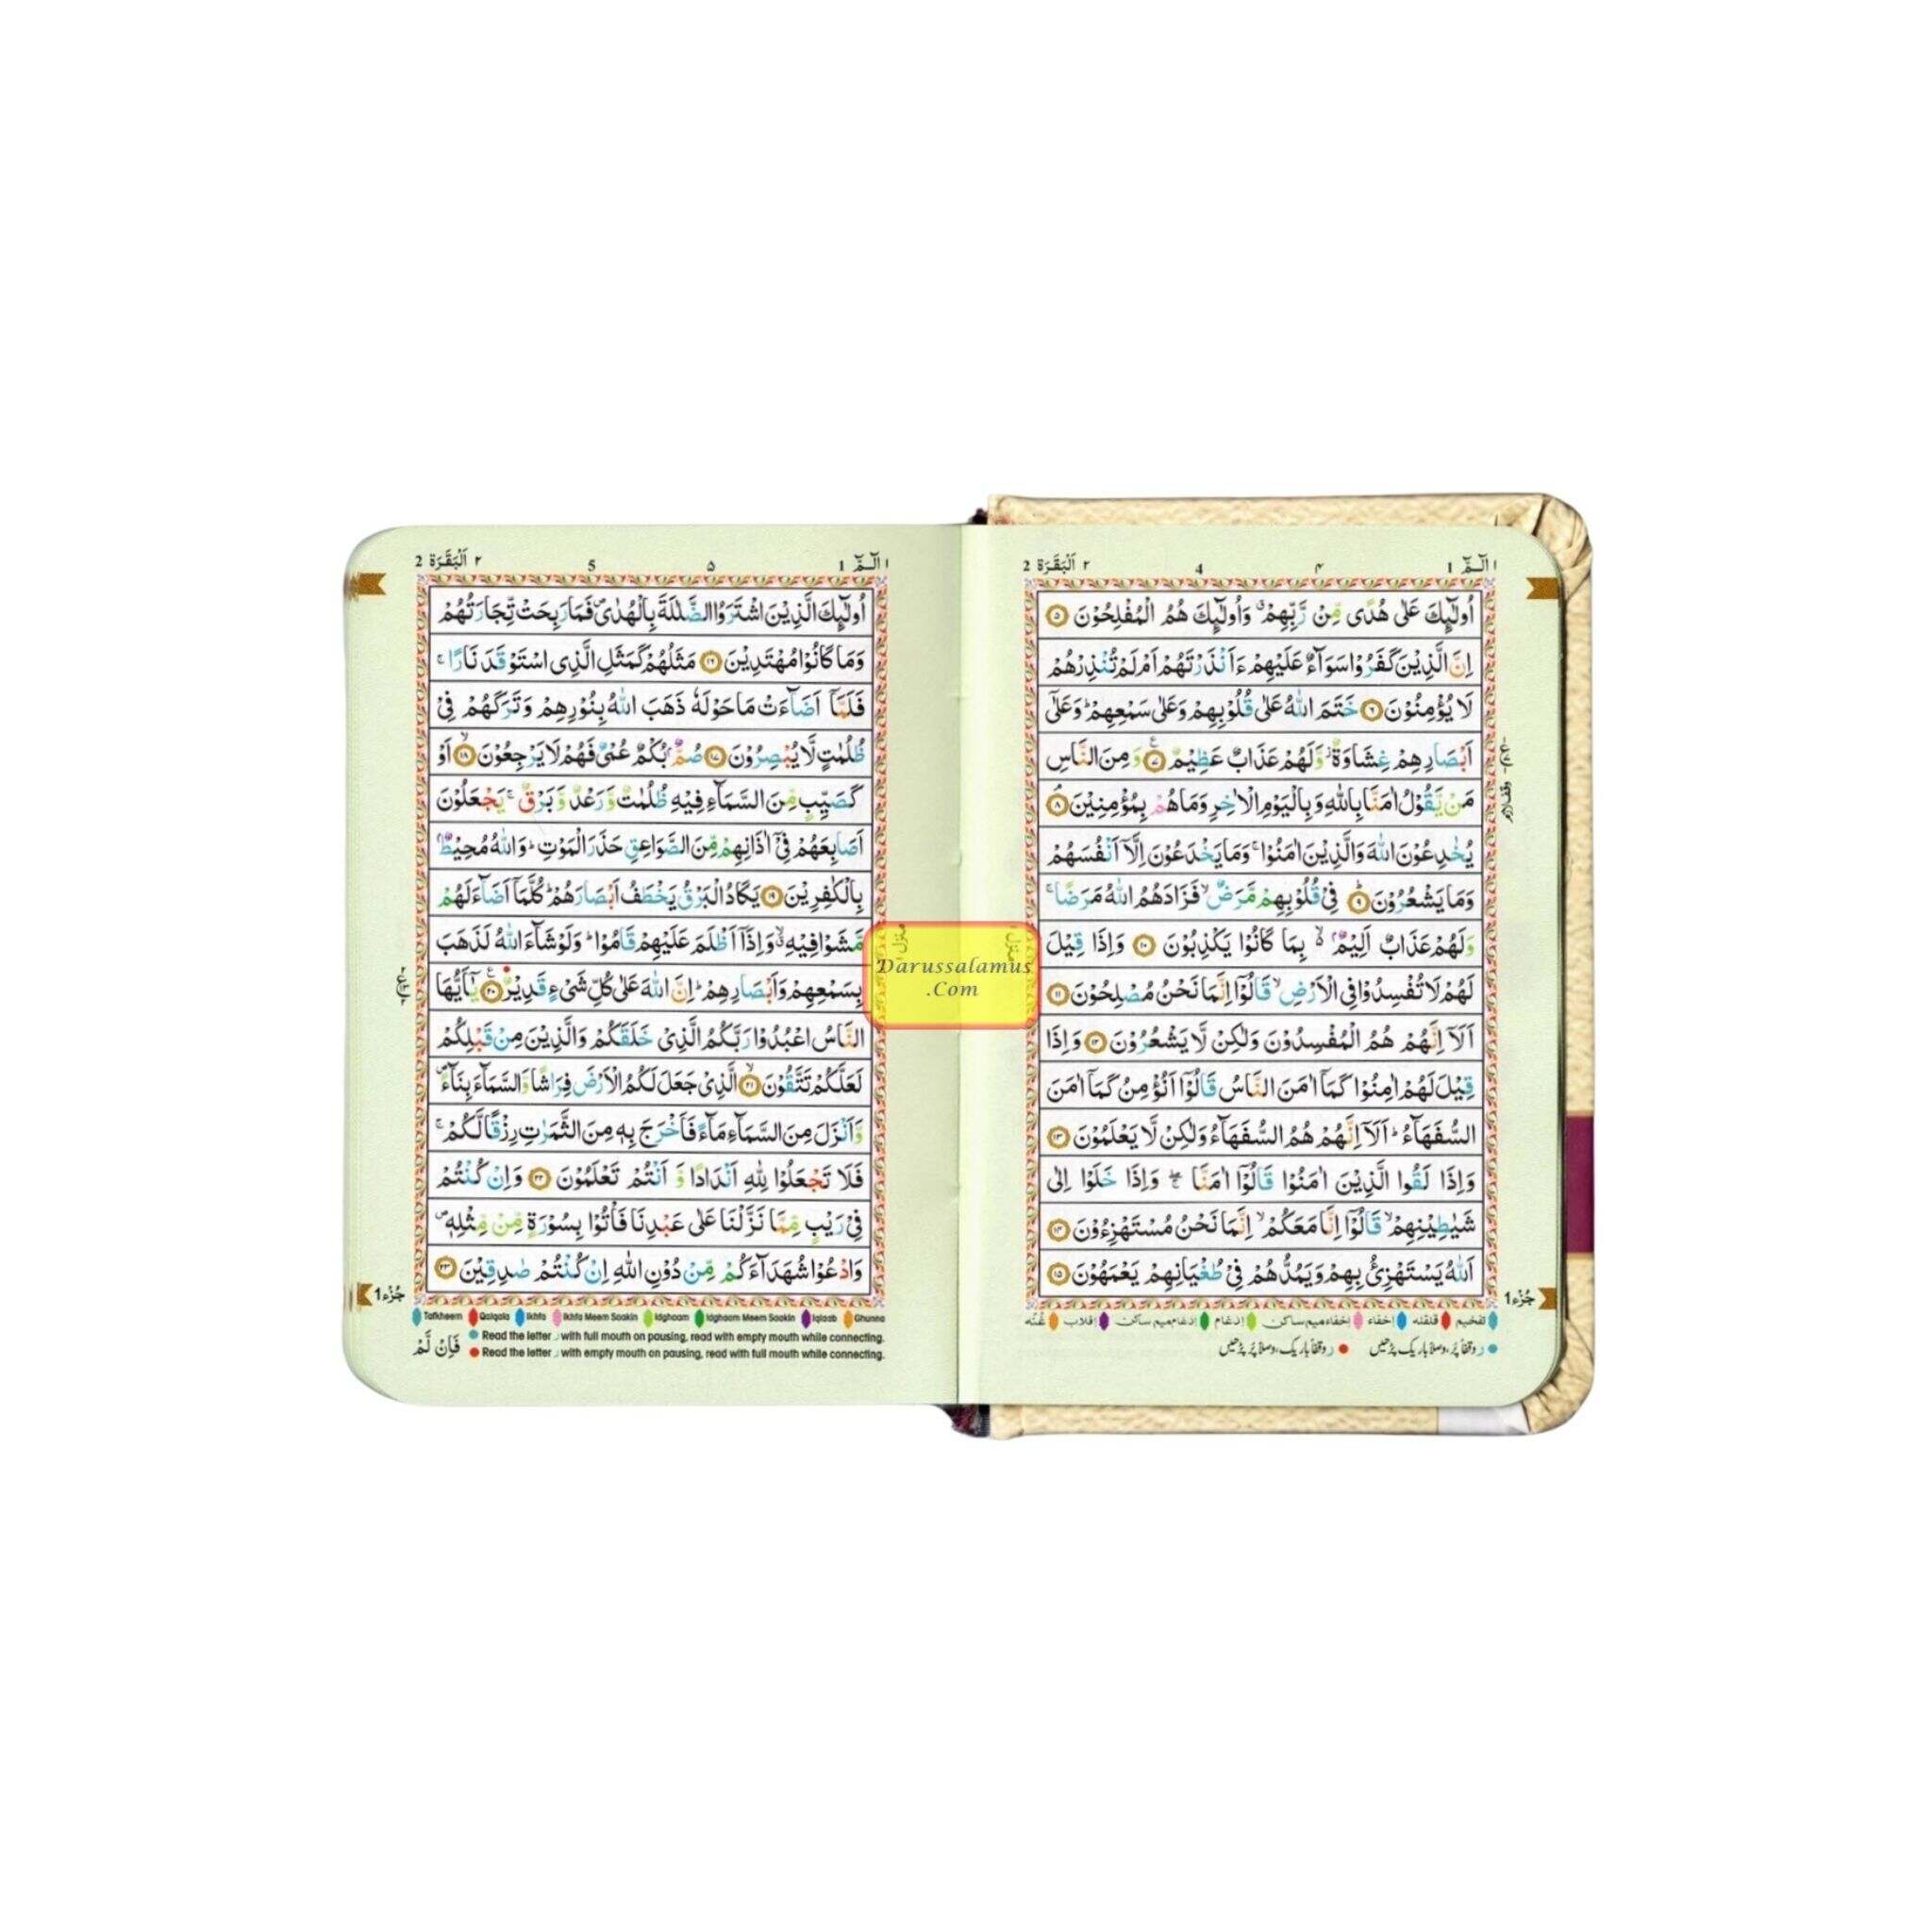 ١ الٓـمّٓ 1 ۴ 4 ٢ اَلْبَقَرَة 2
اُولٰٓئِكَ عَلٰى هُدًى مِّنْ رَّبِّهِمْ ۙ وَاُولٰٓئِكَ هُمُ الْمُفْلِحُوْنَ ۵
اِنَّ الَّذِيْنَ كَفَرُوْا سَوَآءٌ عَلَيْهِمْ ءَاَنْذَرْتَهُمْ اَمْ لَمْ تُنْذِرْهُمْ
لَا يُؤْمِنُوْنَ ۶ خَتَمَ اللّٰهُ عَلٰى قُلُوْبِهِمْ وَعَلٰى سَمْعِهِمْ ؕ وَعَلٰٓى
اَبْصَارِهِمْ غِشَاوَةٌ ؗ وَّلَهُمْ عَذَابٌ عَظِيْمٌ ۷ وَمِنَ النَّاسِ
مَنْ يَّقُوْلُ اٰمَنَّا بِاللّٰهِ وَبِالْيَوْمِ الْاٰخِرِ وَمَا هُمْ بِمُؤْمِنِيْنَ ۸
يُخٰدِعُوْنَ اللّٰهَ وَالَّذِيْنَ اٰمَنُوْا ۚ وَمَا يَخْدَعُوْنَ اِلَّآ اَنْفُسَهُمْ
وَمَا يَشْعُرُوْنَ ۹ فِيْ قُلُوْبِهِمْ مَّرَضٌ ۙ فَزَادَهُمُ اللّٰهُ مَرَضًا ۚ
وَلَهُمْ عَذَابٌ اَلِيْمٌ ۙ بِمَا كَانُوْا يَكْذِبُوْنَ ۱۰ وَاِذَا قِيْلَ
لَهُمْ لَا تُفْسِدُوْا فِي الْاَرْضِ ۙ قَالُوْٓا اِنَّمَا نَحْنُ مُصْلِحُوْنَ ۱۱
اَلَآ اِنَّهُمْ هُمُ الْمُفْسِدُوْنَ وَلٰكِنْ لَّا يَشْعُرُوْنَ ۱۲ وَاِذَا
قِيْلَ لَهُمْ اٰمِنُوْا كَمَآ اٰمَنَ النَّاسُ قَالُوْٓا اَنُؤْمِنُ كَمَآ اٰمَنَ
السُّفَهَآءُ ؕ اَلَآ اِنَّهُمْ هُمُ السُّفَهَآءُ وَلٰكِنْ لَّا يَعْلَمُوْنَ ۱۳
وَاِذَا لَقُوا الَّذِيْنَ اٰمَنُوْا قَالُوْٓا اٰمَنَّا ۖۚ وَاِذَا خَلَوْا اِلٰى
شَيٰطِيْنِهِمْ ۙ قَالُوْٓا اِنَّا مَعَكُمْ ۙ اِنَّمَا نَحْنُ مُسْتَهْزِءُوْنَ ۱۴
اَللّٰهُ يَسْتَهْزِئُ بِهِمْ وَيَمُدُّهُمْ فِيْ طُغْيَانِهِمْ يَعْمَهُوْنَ ۱۵
جُزْء 1
تفخيم قلقله إخفاء إخفاء ميم ساكن إدغام إدغام ميم ساكن إقلاب غُنّه
ر وقفاً پُر، وصلاً باریک پڑھیں ر وقفاً باریک، وصلاً پُر پڑھیں
١ الٓـمّٓ 1 ۵ 5 ٢ اَلْبَقَرَة 2
اُولٰٓئِكَ الَّذِيْنَ اشْتَرَوُا الضَّلٰلَةَ بِالْهُدٰى ۪ فَمَا رَبِحَتْ تِّجَارَتُهُمْ
وَمَا كَانُوْا مُهْتَدِيْنَ ۱۶ مَثَلُهُمْ كَمَثَلِ الَّذِى اسْتَوْقَدَ نَارًا ۚ
فَلَمَّآ اَضَآءَتْ مَا حَوْلَهٗ ذَهَبَ اللّٰهُ بِنُوْرِهِمْ وَتَرَكَهُمْ فِيْ
ظُلُمٰتٍ لَّا يُبْصِرُوْنَ ۱۷ صُمٌّۢ بُكْمٌ عُمْيٌ فَهُمْ لَا يَرْجِعُوْنَ ۱۸ اَوْ
كَصَيِّبٍ مِّنَ السَّمَآءِ فِيْهِ ظُلُمٰتٌ وَّرَعْدٌ وَّبَرْقٌ ۚ يَجْعَلُوْنَ
اَصَابِعَهُمْ فِيْٓ اٰذَانِهِمْ مِّنَ الصَّوَاعِقِ حَذَرَ الْمَوْتِ ؕ وَاللّٰهُ مُحِيْطٌۢ
بِالْكٰفِرِيْنَ ۱۹ يَكَادُ الْبَرْقُ يَخْطَفُ اَبْصَارَهُمْ ؕ كُلَّمَآ اَضَآءَ لَهُمْ
مَّشَوْا فِيْهِ ۙ وَاِذَآ اَظْلَمَ عَلَيْهِمْ قَامُوْا ؕ وَلَوْ شَآءَ اللّٰهُ لَذَهَبَ
بِسَمْعِهِمْ وَاَبْصَارِهِمْ ؕ اِنَّ اللّٰهَ عَلٰى كُلِّ شَيْءٍ قَدِيْرٌ ۲۰ يٰٓاَيُّهَا
النَّاسُ اعْبُدُوْا رَبَّكُمُ الَّذِيْ خَلَقَكُمْ وَالَّذِيْنَ مِنْ قَبْلِكُمْ
لَعَلَّكُمْ تَتَّقُوْنَ ۲۱ الَّذِيْ جَعَلَ لَكُمُ الْاَرْضَ فِرَاشًا وَّالسَّمَآءَ بِنَآءً ۪
وَّاَنْزَلَ مِنَ السَّمَآءِ مَآءً فَاَخْرَجَ بِهٖ مِنَ الثَّمَرٰتِ رِزْقًا لَّكُمْ ۚ
فَلَا تَجْعَلُوْا لِلّٰهِ اَنْدَادًا وَّاَنْتُمْ تَعْلَمُوْنَ ۲۲ وَاِنْ كُنْتُمْ
فِيْ رَيْبٍ مِّمَّا نَزَّلْنَا عَلٰى عَبْدِنَا فَاْتُوْا بِسُوْرَةٍ مِّنْ مِّثْلِهٖ ۪
وَادْعُوْا شُهَدَآءَكُمْ مِّنْ دُوْنِ اللّٰهِ اِنْ كُنْتُمْ صٰدِقِيْنَ ۲۳
جُزْء 1
Tafkheem Qalqala Ikhfa Ikhfa Meem Saakin Idghaam Idghaam Meem Saakin Iqlaab Ghunna
Read the letter ر with full mouth on pausing, read with empty mouth while connecting.
Read the letter ر with empty mouth on pausing, read with full mouth while connecting.
فَاِنْ لَّمْ
Darussalamus
.Com